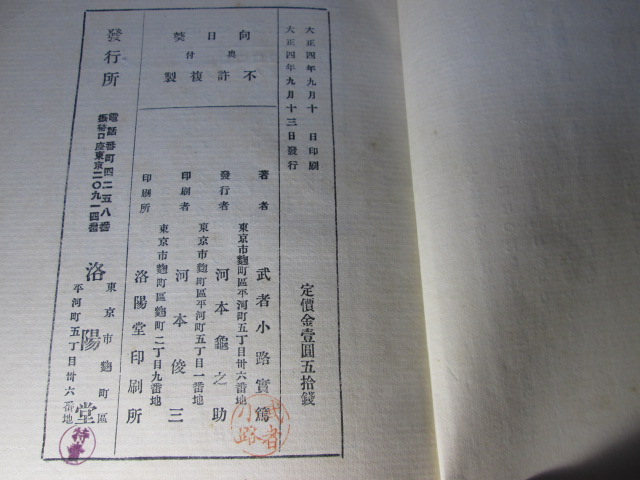 大正四年九月十　日印刷
大正四年九月十三日發行
定價金壹圓五拾錢
向日葵
奥付
不許複製
著者　武者小路實篤
東京市麴町區平河町五丁目卅六番地
發行者　河本龜之助
東京市麴町區平河町五丁目一番地
印刷者　河本俊三
東京市麴町區麴町二丁目九番地
印刷所　洛陽堂印刷所
發行所
東京市麴町區
平河町五丁目卅六番地
洛陽堂
電話番町四二五八番
振替口座東京二〇九一四番
武者小路